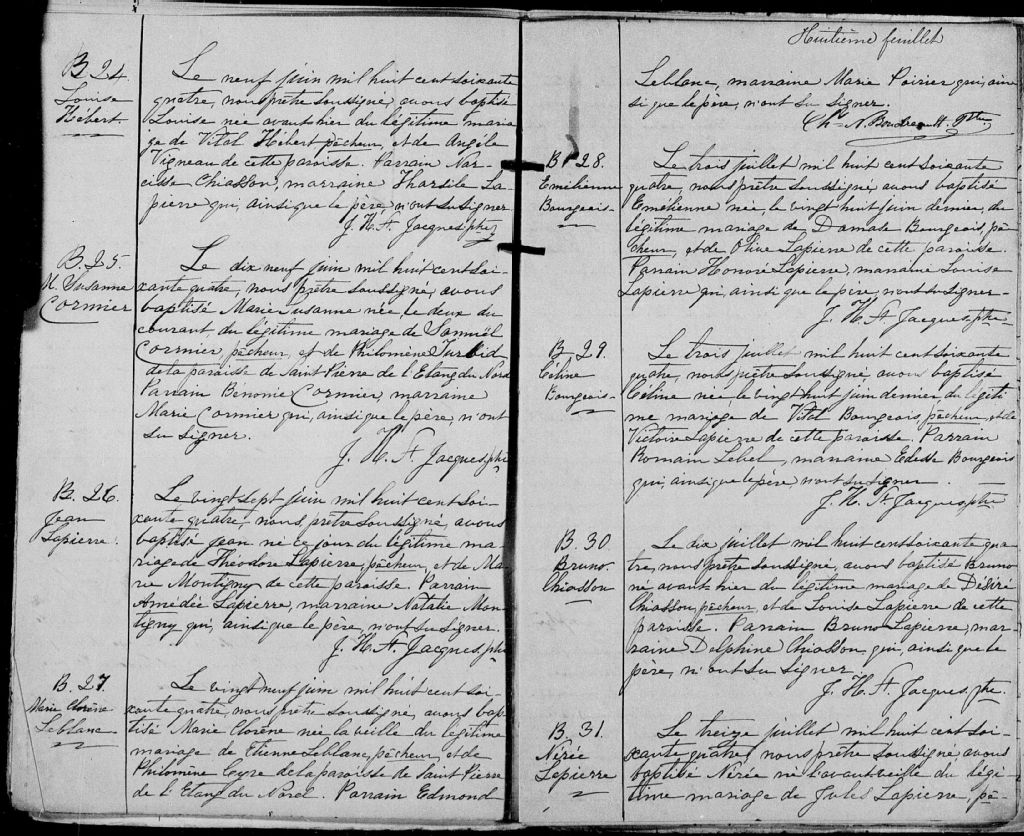 B 24.
Louise
Hébert
Le neuf juin mil huit cent soixante
quatre, nous prêtre soussigné, avons baptisé
Louise née avant hier du légitime maria
ge de Vital Hébert pêcheur, et de Angèle
Vigneau de cette paroisse. Parrain Nar-
cisse Chiasson, marraine Tharsile La-
pierre qui, ainsi que le père, n'ont su signer
J. H. A. Jacques, ptre
B. 25.
M. Susanne
Cormier
Le dix neuf juin mil huit cent soi-
xante quatre, nous prêtre soussigné, avons
baptisé Marie Susanne née, le deux du
courant du légitime mariage de Samuël
Cormier, pêcheur, et de Philomène Turbid
de la paroisse de Saint Pierre de l'Etang du Nord
Parrain Bénomie Cormier, marraine
Marie Cormier qui, ainsi que le père, n'ont
su signer.
J. H. A. Jacques, ptre
B. 26.
Jean
Lapierre.
Le vingt sept juin mil huit cent soi-
xante quatre, nous, prêtre soussigné, avons
baptisé Jean né ce jour du légitime ma-
riage de Théodore Lapierre, pêcheur, et de Ma
rie Montigny de cette paroisse. Parrain
Amédée Lapierre, marraine Natalie Mon-
tigny qui, ainsi que le père, n'ont su signer.
J. H. A. Jacques, ptre
B. 27.
Marie Clorène
Leblanc
Le vingt neuf juin mil huit cent soi-
xante quatre, nous prêtre soussigné, avons bap-
tisé Marie Clorène née la veille du légitime
mariage de Etienne Leblanc, pêcheur, et de
Philomène Cyre de la paroisse de Saint Pierre
de l'Etang du Nord. Parrain Edmond
Huitième feuillet
Leblanc, marraine Marie Poirier qui, ain
si que le père, n'ont su signer.
Chs N. Boudreault Ptre
B. 28.
Emélienne
Bourgeois
Le trois juillet mil huit cent soixante
quatre, nous prêtre soussigné, avons baptisé
Emélienne née, le vingt huit juin dernier, du
légitime mariage de Damase Bourgeois, pê
cheur, et de Olive Lapierre de cette paroisse.
Parrain Honoré Lapierre, marraine Louise
Lapierre qui, ainsi que le père, n'ont su signer
J. H. A. Jacques, ptre
B. 29.
Céline
Bourgeois
Le trois juillet mil huit cent soixante
quatre, nous prêtre soussigné, avons baptisé
Céline née le vingt huit juin dernier du légiti
me mariage de Vital Bourgeois, pêcheur, et de
Victoire Lapierre de cette paroisse. Parrain
Romain Lebel, marraine Edesse Bourgeois
qui, ainsi que le père n'ont su signer
J. H. A. Jacques ptre
B. 30
Bruno
Chiasson
Le dix juillet mil huit cent soixante qua
tre, nous prêtre soussigné, avons baptisé Bruno
né avant hier du légitime mariage de Désiré
Chiasson, pêcheur, et de Louise Lapierre de cette
paroisse. Parrain Bruno Lapierre, mar-
raine Delphine Chiasson qui, ainsi que le
père, n'ont su signer
J. H. A. Jacques, ptre.
B. 31.
Nérée
Lapierre
Le treize juillet mil huit cent soi-
xante quatre, nous prêtre soussigné, avons
baptisé Nérée né l'avant veille du légi-
time mariage de Jules Lapierre, pê-